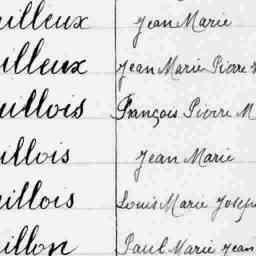 uilleux Jean Marie
uilleux Jean Marie Pierre
uillois François Pierre M
uillois Jean Marie
uillois Louis Marie Joseph
uillon Paul Marie Jean